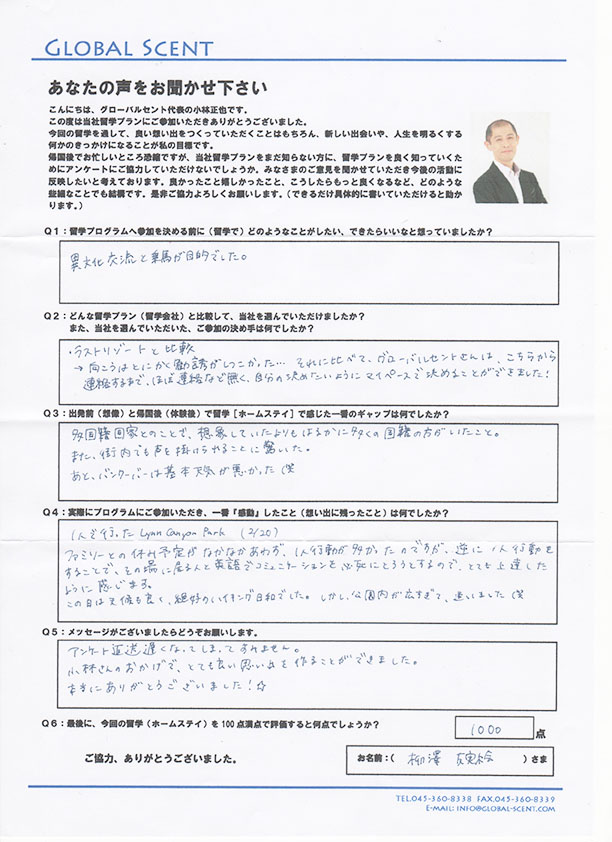 GLOBAL SCENT
あなたの声をお聞かせ下さい
こんにちは、グローバルセント代表の小林正也です。
この度は当社留学プランにご参加いただきありがとうございました。
今回の留学を通して、良い想い出をつくっていただくことはもちろん、新しい出会いや、人生を明るくする
何かのきっかけになることが私の目標です。
帰国後でお忙しいところ恐縮ですが、当社留学プランをまだ知らない方に、留学プランを良く知っていくた
めにアンケートにご協力していただけないでしょうか。みなさまのご意見を聞かせていただき今後の活動に
反映したいと考えております。良かったこと嬉しかったこと、こうしたらもっと良くなるなど、どのような
些細なことでも結構です。是非ご協力よろしくお願いします。（できるだけ具体的に書いていただけると助か
ります。）
Q1：留学プログラムへ参加を決める前に（留学で）どのようなことがしたい、できたらいいなと想っていましたか？
異文化交流と乗馬が目的でした。
Q2：どんな留学プラン（留学会社）と比較して、当社を選んでいただけましたか？
また、当社を選んでいただいた、ご参加の決め手は何でしたか？
・ラストリゾートと比較
→ 向こうはとにかく勧誘がしつこかった… それに比べて、グローバルセントさんは、こちらから
連絡するまで、ほぼ連絡など無く、自分の決めたいようにマイペースで決めることができました！
Q3：出発前（想像）と帰国後（体験後）で留学［ホームステイ］で感じた一番のギャップは何でしたか？
多国籍国家とのことで、想像していたよりもはるかに多くの国籍の方がいたこと。
また、街内でも声を掛けられることに驚いた。
あと、バンクーバーは基本天気が悪かった（笑
Q4：実際にプログラムにご参加いただき、一番『感動』したこと（想い出に残ったこと）は何でしたか？
1人で行った Lynn Canyon Park （2/20）
ファミリーとの休み予定がなかなかあわず、1人行動が多かったのですが、逆に1人行動を
することで、その場に居る人と英語でコミュニケーションを必死にとろうとするので、とても上達した
ように感じます。
この日は天候も良く、絶好のハイキング日和でした。しかし、公園内が広すぎて、迷いました（笑
Q5：メッセージがございましたらどうぞお願いします。
アンケート返送遅くなってしまってすみません。
小林さんのおかげで、とても良い思い出を作ることができました。
本当にありがとうございました！☆
Q6：最後に、今回の留学（ホームステイ）を100点満点で評価すると何点でしょうか？
1000 点
ご協力、ありがとうございました。
お名前：（ 柳澤 ）さま
TEL.045-360-8338 FAX.045-360-8339
E-MAIL: INFO@GLOBAL-SCENT.COM